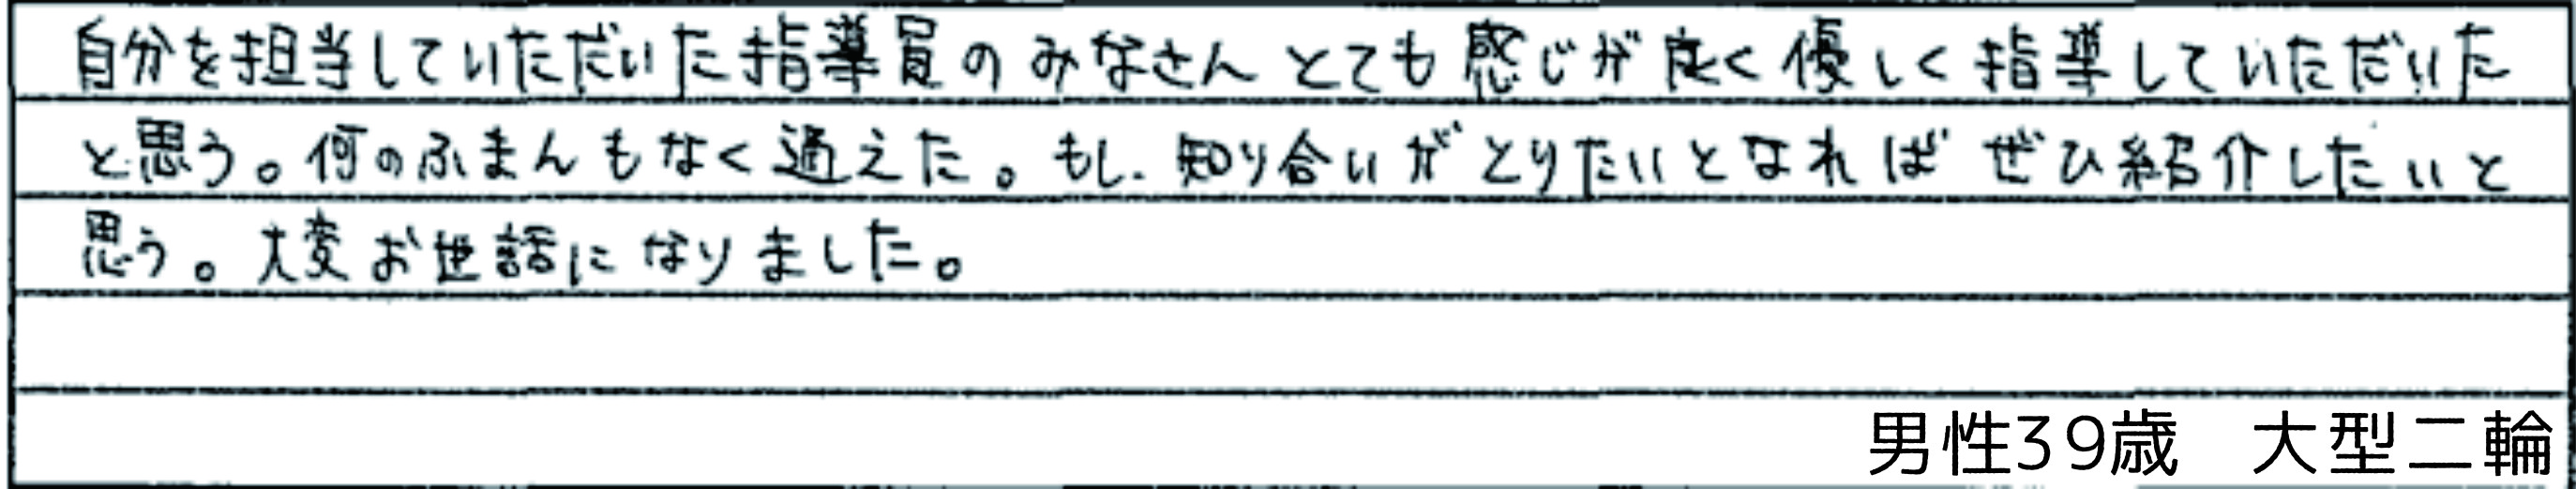 自分を担当していただいた指導員のみなさんとても感じが良く優しく指導していただいた
と思う。何のふまんもなく通えた。もし、知り合いがとりたいとなればぜひ紹介したいと
思う。大変お世話になりました。
男性39歳 大型二輪